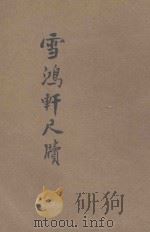 雪鴻軒尺牘
mtoou.info